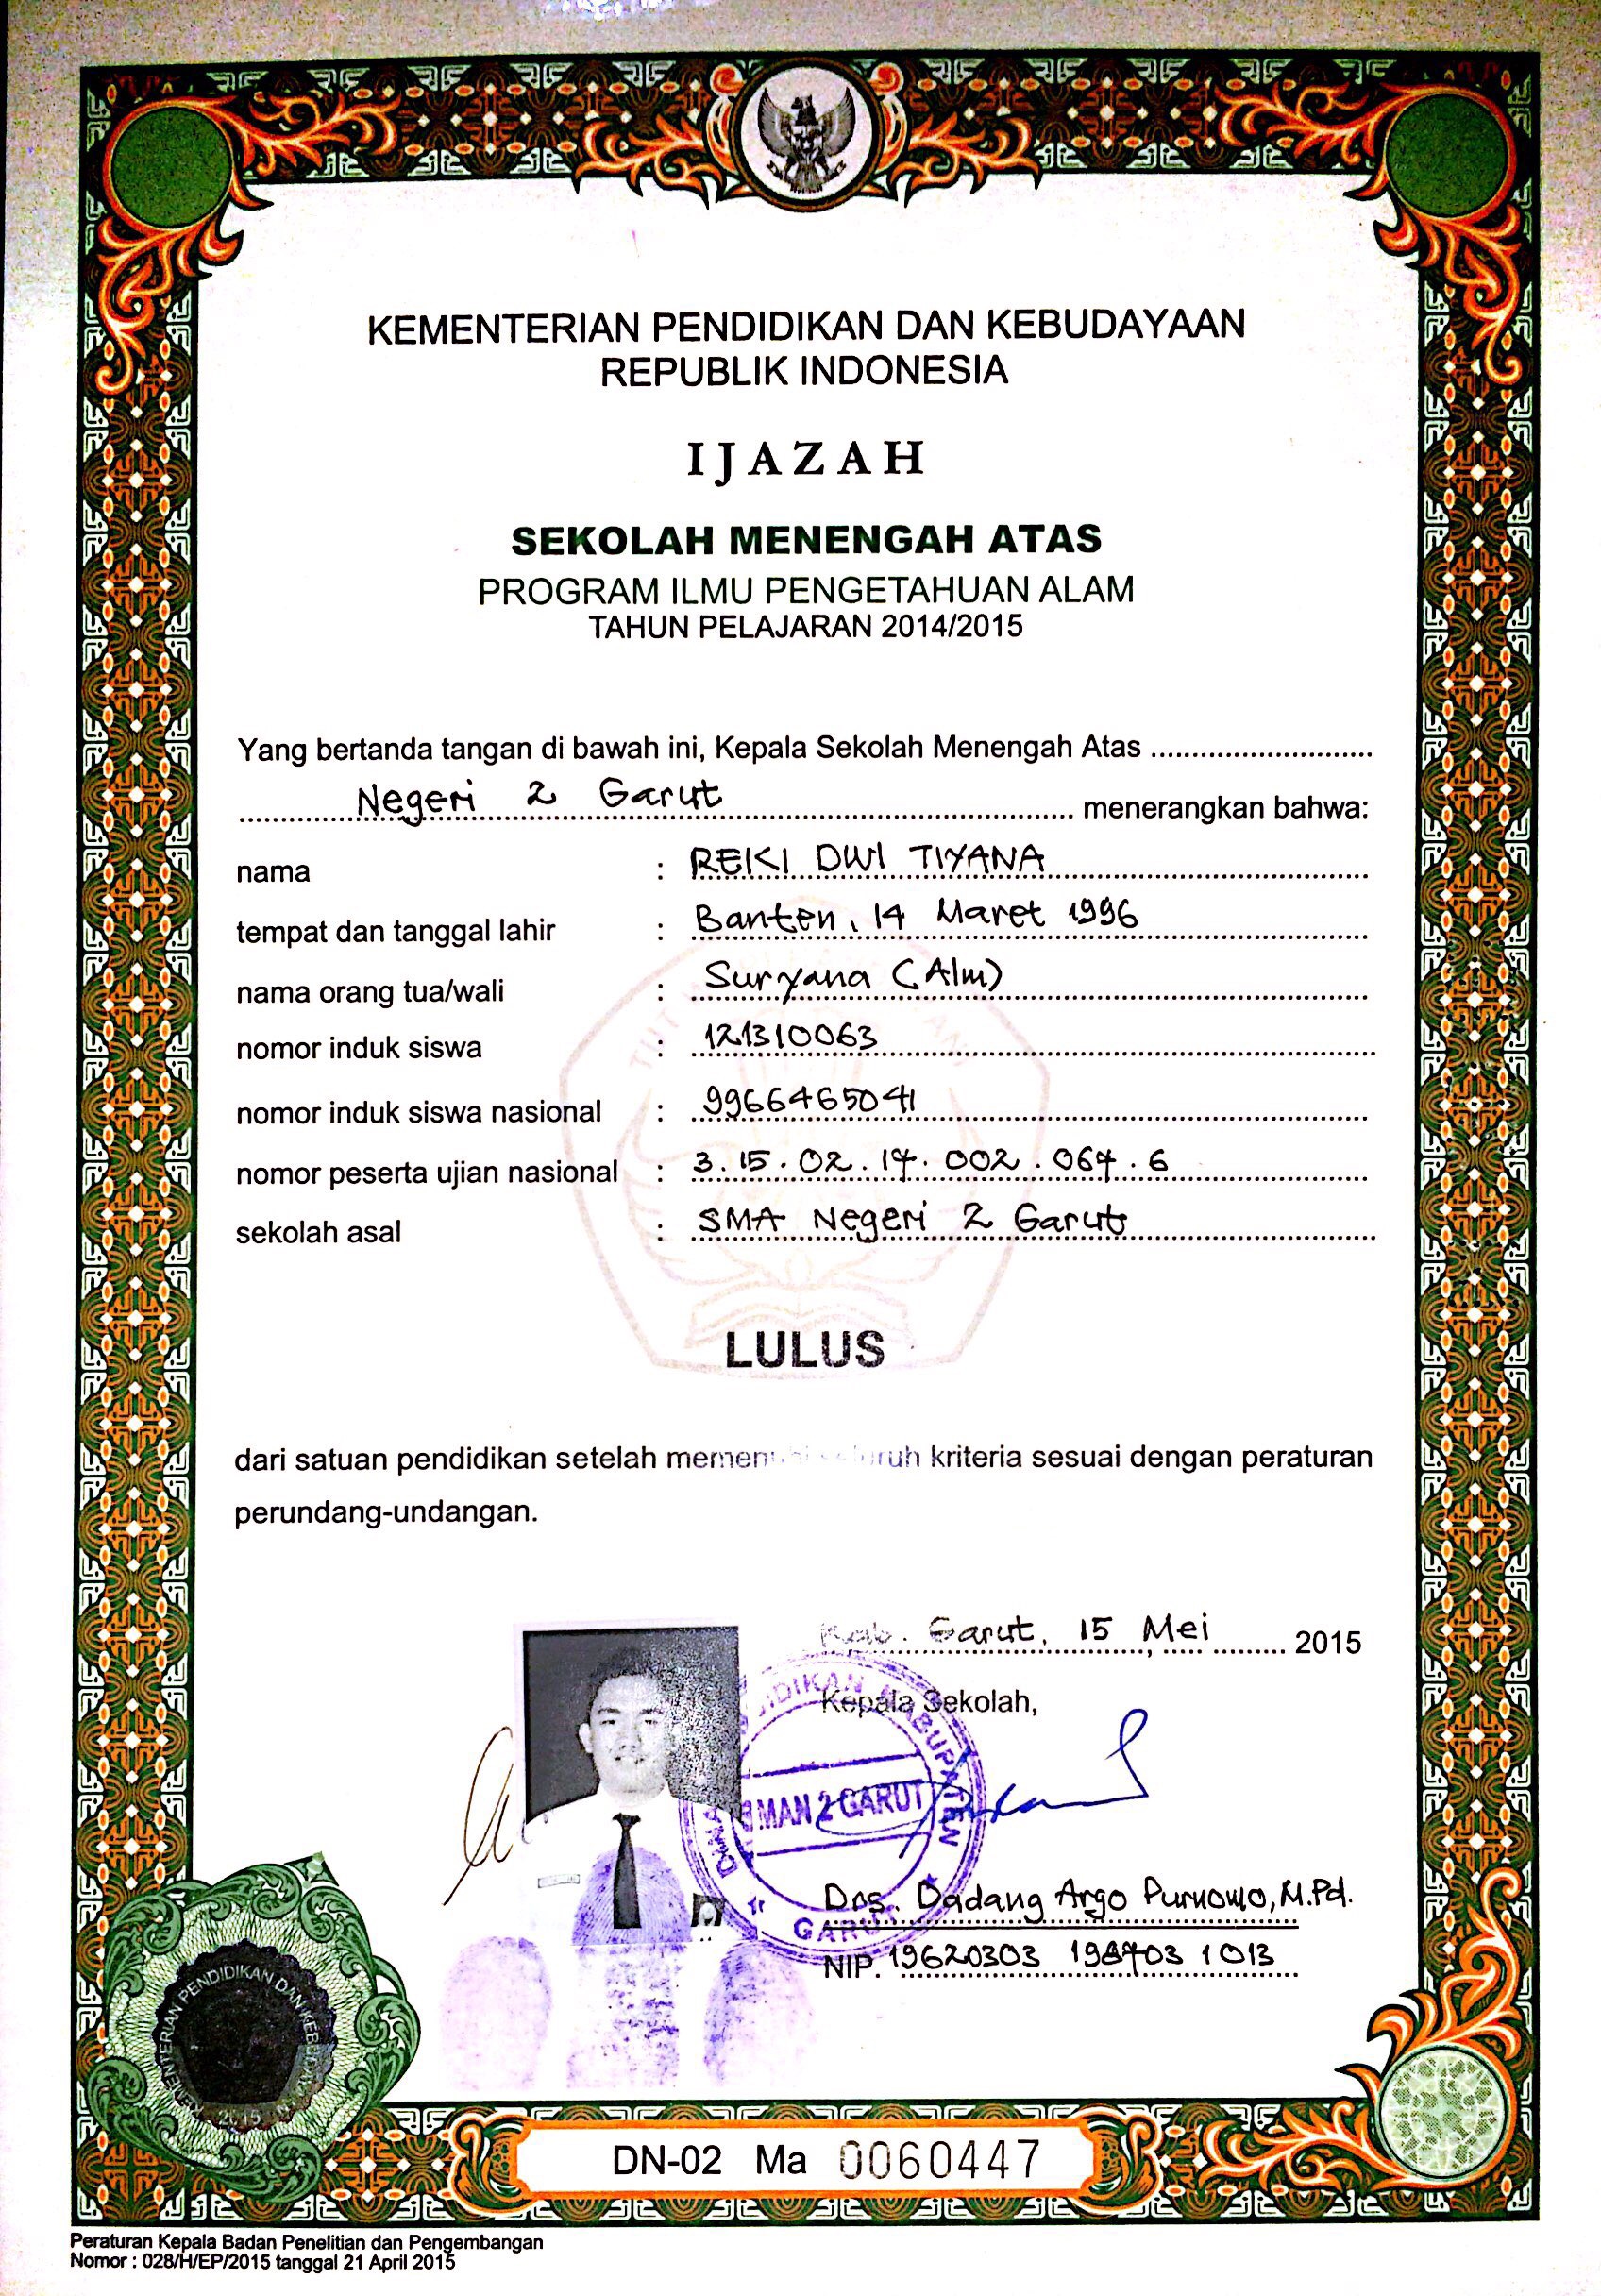 KEMENTERIAN PENDIDIKAN DAN KEBUDAYAAN
REPUBLIK INDONESIA
IJAZAH
SEKOLAH MENENGAH ATAS
PROGRAM ILMU PENGETAHUAN ALAM
TAHUN PELAJARAN 2014/2015
Yang bertanda tangan di bawah ini, Kepala Sekolah Menengah Atas
Negeri 2 Garut menerangkan bahwa:
nama : REIKI DWI TIYANA
tempat dan tanggal lahir : Banten, 14 Maret 1996
nama orang tua/wali : Suryana (Alm)
nomor induk siswa : 121310063
nomor induk siswa nasional : 9966465041
nomor peserta ujian nasional : 3.15.02.17.002.064.6
sekolah asal : SMA Negeri 2 Garut
LULUS
dari satuan pendidikan setelah memenuhi seluruh kriteria sesuai dengan peraturan
perundang-undangan.
Kab. Garut, 15 Mei 2015
Kepala Sekolah,
SMAN 2 GARUT
GARUT
Drs. Dadang Argo Purnomo, M.Pd.
NIP. 19620303 198703 1 013
KEMENTERIAN PENDIDIKAN DAN KEBUDAYAAN
2015
DN-02 Ma 0060447
Peraturan Kepala Badan Penelitian dan Pengembangan
Nomor : 028/H/EP/2015 tanggal 21 April 2015